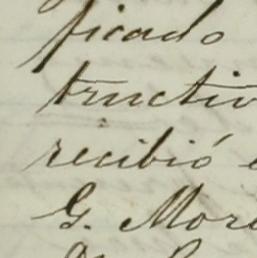 ficado
tructiv
recibió e
G. More